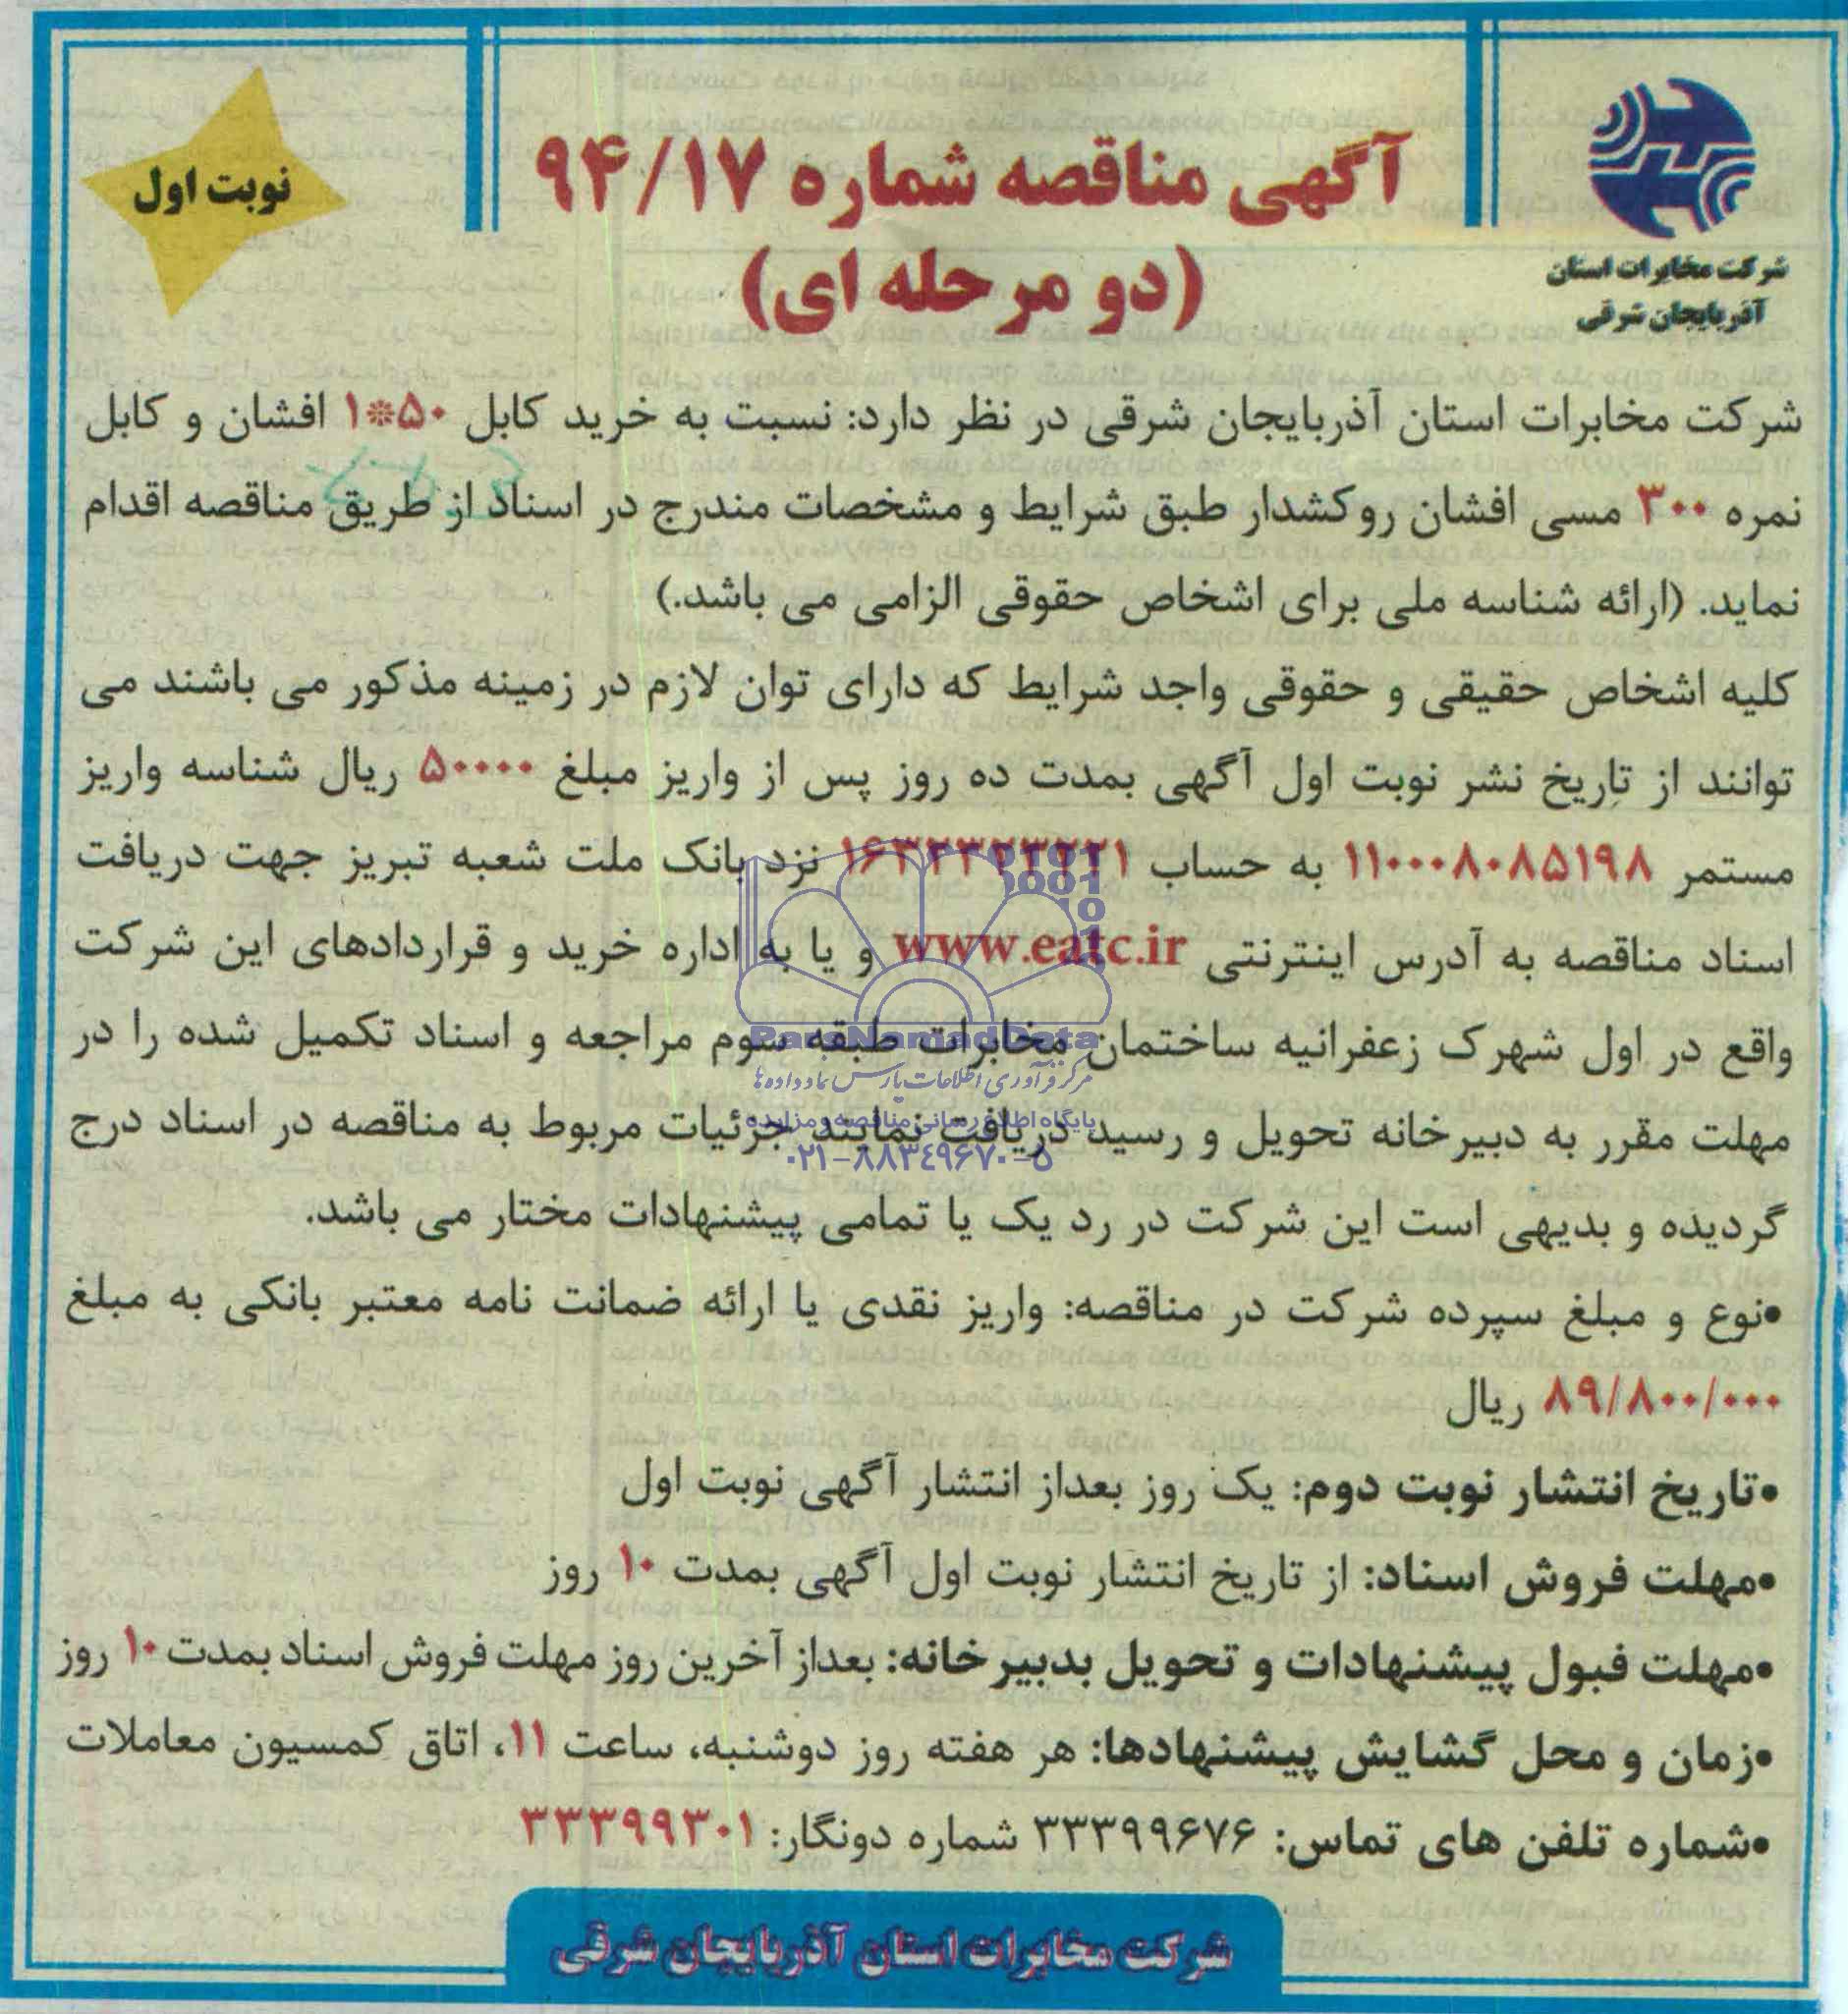 شرکت مخابرات استان
آذربایجان شرقی
آگهی مناقصه شماره ۹۴/۱۷
(دو مرحله ای)
نوبت اول
شرکت مخابرات استان آذربایجان شرقی در نظر دارد: نسبت به خرید کابل ۵۰*۱ افشان و کابل
نمره ۳۰۰ مسی افشان روکشدار طبق شرایط و مشخصات مندرج در اسناد از طریق مناقصه اقدام
نماید. (ارائه شناسه ملی برای اشخاص حقوقی الزامی می باشد.)
کلیه اشخاص حقیقی و حقوقی واجد شرایط که دارای توان لازم در زمینه مذکور می باشند می
توانند از تاریخ نشر نوبت اول آگهی بمدت ده روز پس از واریز مبلغ ۵۰۰۰۰ ریال شناسه واریز
مستمر ۱۱۰۰۰۸۰۸۵۱۹۸ به حساب نزد بانک ملت شعبه تبریز جهت دریافت
اسناد مناقصه به آدرس اینترنتی www.eatc.ir و یا به اداره خرید و قراردادهای این شرکت
واقع در اول شهرک زعفرانیه ساختمان مخابرات طبقه سوم مراجعه و اسناد تکمیل شده را در
مهلت مقرر به دبیرخانه تحویل و رسید دریافت نمایند جزئیات مربوط به مناقصه در اسناد درج
گردیده و بدیهی است این شرکت در رد یک یا تمامی پیشنهادات مختار می باشد.
•نوع و مبلغ سپرده شرکت در مناقصه: واریز نقدی یا ارائه ضمانت نامه معتبر بانکی به مبلغ
۸۹/۸۰۰/۰۰۰ ریال
•تاریخ انتشار نوبت دوم: یک روز بعداز انتشار آگهی نوبت اول
•مهلت فروش اسناد: از تاریخ انتشار نوبت اول آگهی بمدت ۱۰ روز
•مهلت قبول پیشنهادات و تحویل بدبیرخانه: بعداز آخرین روز مهلت فروش اسناد بمدت ۱۰ روز
•زمان و محل گشایش پیشنهادها: هر هفته روز دوشنبه، ساعت ۱۱، اتاق کمسیون معاملات
•شماره تلفن های تماس: ۳۳۳۹۹۶۷۶ شماره دونگار: ۳۳۳۹۹۳۰۱
شرکت مخابرات استان آذربایجان شرقی
ParsNamadData
مرکز فرآوری اطلاعات پارس نماد داده ها
پایگاه اطلاع رسانی مناقصه و مزایده
۰۲۱-۸۸۳۴۹۶۷۰-۵